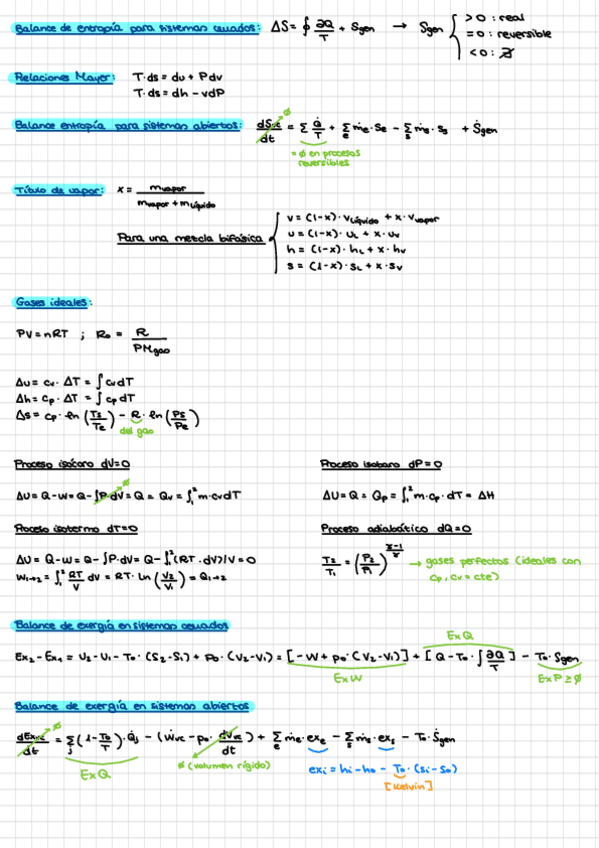 Balance de entropía para sistemas cerrados: ΔS = ∮ ∂Q/T + Sgen → Sgen { >0 : real
=0 : reversible
<0 : ∄
Relaciones Mayer: T·ds = du + Pdv
T·ds = dh - vdP
Balance entropía para sistemas abiertos: dSvc/dt = Σ Q̇/T + Σe ṁe·Se - Σs ṁs·Ss + Ṡgen
= ∅ en procesos
reversibles
Título de vapor: x = mvapor / (mvapor + mlíquido)
Para una mezcla bifásica { v = (1-x)·vlíquido + x·vvapor
u = (1-x)·uL + x·uv
h = (1-x)·hL + x·hv
s = (1-x)·sL + x·sv
Gases ideales:
PV = nRT ; Ro = R / PMgas
Δu = cv·ΔT = ∫cvdT
Δh = cp·ΔT = ∫cpdT
Δs = cp·ln(Ts/Te) - R·ln(Ps/Pe)
del gas
Proceso isócoro dV=0
Proceso isobaro dP=0
ΔU = Q-W = Q-∫P·dV = Q = Qv = ∫₁² m·cvdT
∅
ΔU = Q = Qp = ∫₁² m·cp·dT = ΔH
Proceso isotermo dT=0
Proceso adiabático dQ=0
ΔU = Q-W = Q-∫P·dV = Q-∫₁²(RT·dV)/V = 0
W1→2 = ∫₁² RT/V dV = RT·Ln(V2/V1) = Q1→2
T2/T1 = (P2/P1)^((γ-1)/γ) → gases perfectos (ideales con
cp, cv = cte)
Balance de exergía en sistemas cerrados
ExQ
Ex2 - Ex1 = U2 - U1 - To·(S2-S1) + po·(V2-V1) = [-W + po·(V2-V1)] + [Q - To·∫∂Q/T] - To·Sgen
ExW
ExP ≥ ∅
Balance de exergía en sistemas abiertos
dExvc/dt = Σj (1 - To/T)·Q̇j - (Ẇvc - po·dVvc/dt) + Σe ṁe·exe - Σs ṁs·exs - To·Ṡgen
∅
ExQ
∅ (volumen rígido)
exi = hi - ho - To·(si-so)
[Kelvin]